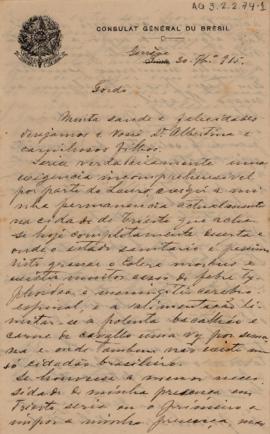 AG 3.2.2.74-1
CONSULAT GÉNÉRAL DU BRÉSIL
Genève
30. 915.
Gordo
Muita saude e felicidades
desejamos a vossê D. Albertina e
carinhosos filhos.
Seria verdadeiramente uma
exigencia incomprehensivel
por parte do Lauro, exigir a mi-
nha permanencia actualmente
na cidade de Trieste que acha-
se hoje completamente deserta e
onde o estado sanitario é pessimo
visto grassar o colera morbus e
muitos casos de febre ty-
phoide e meningite cerebro
espinal, e a alimentação li-
mitar-se a polenta bacalháo e
carne de cavallo uma vez por sema-
na e onde tambem não existe um
só cidadão brasileiro.
Se houvesse a menor neces-
sidade de minha presença em
Trieste seria eu o primeiro a
impor a minha presença, mas